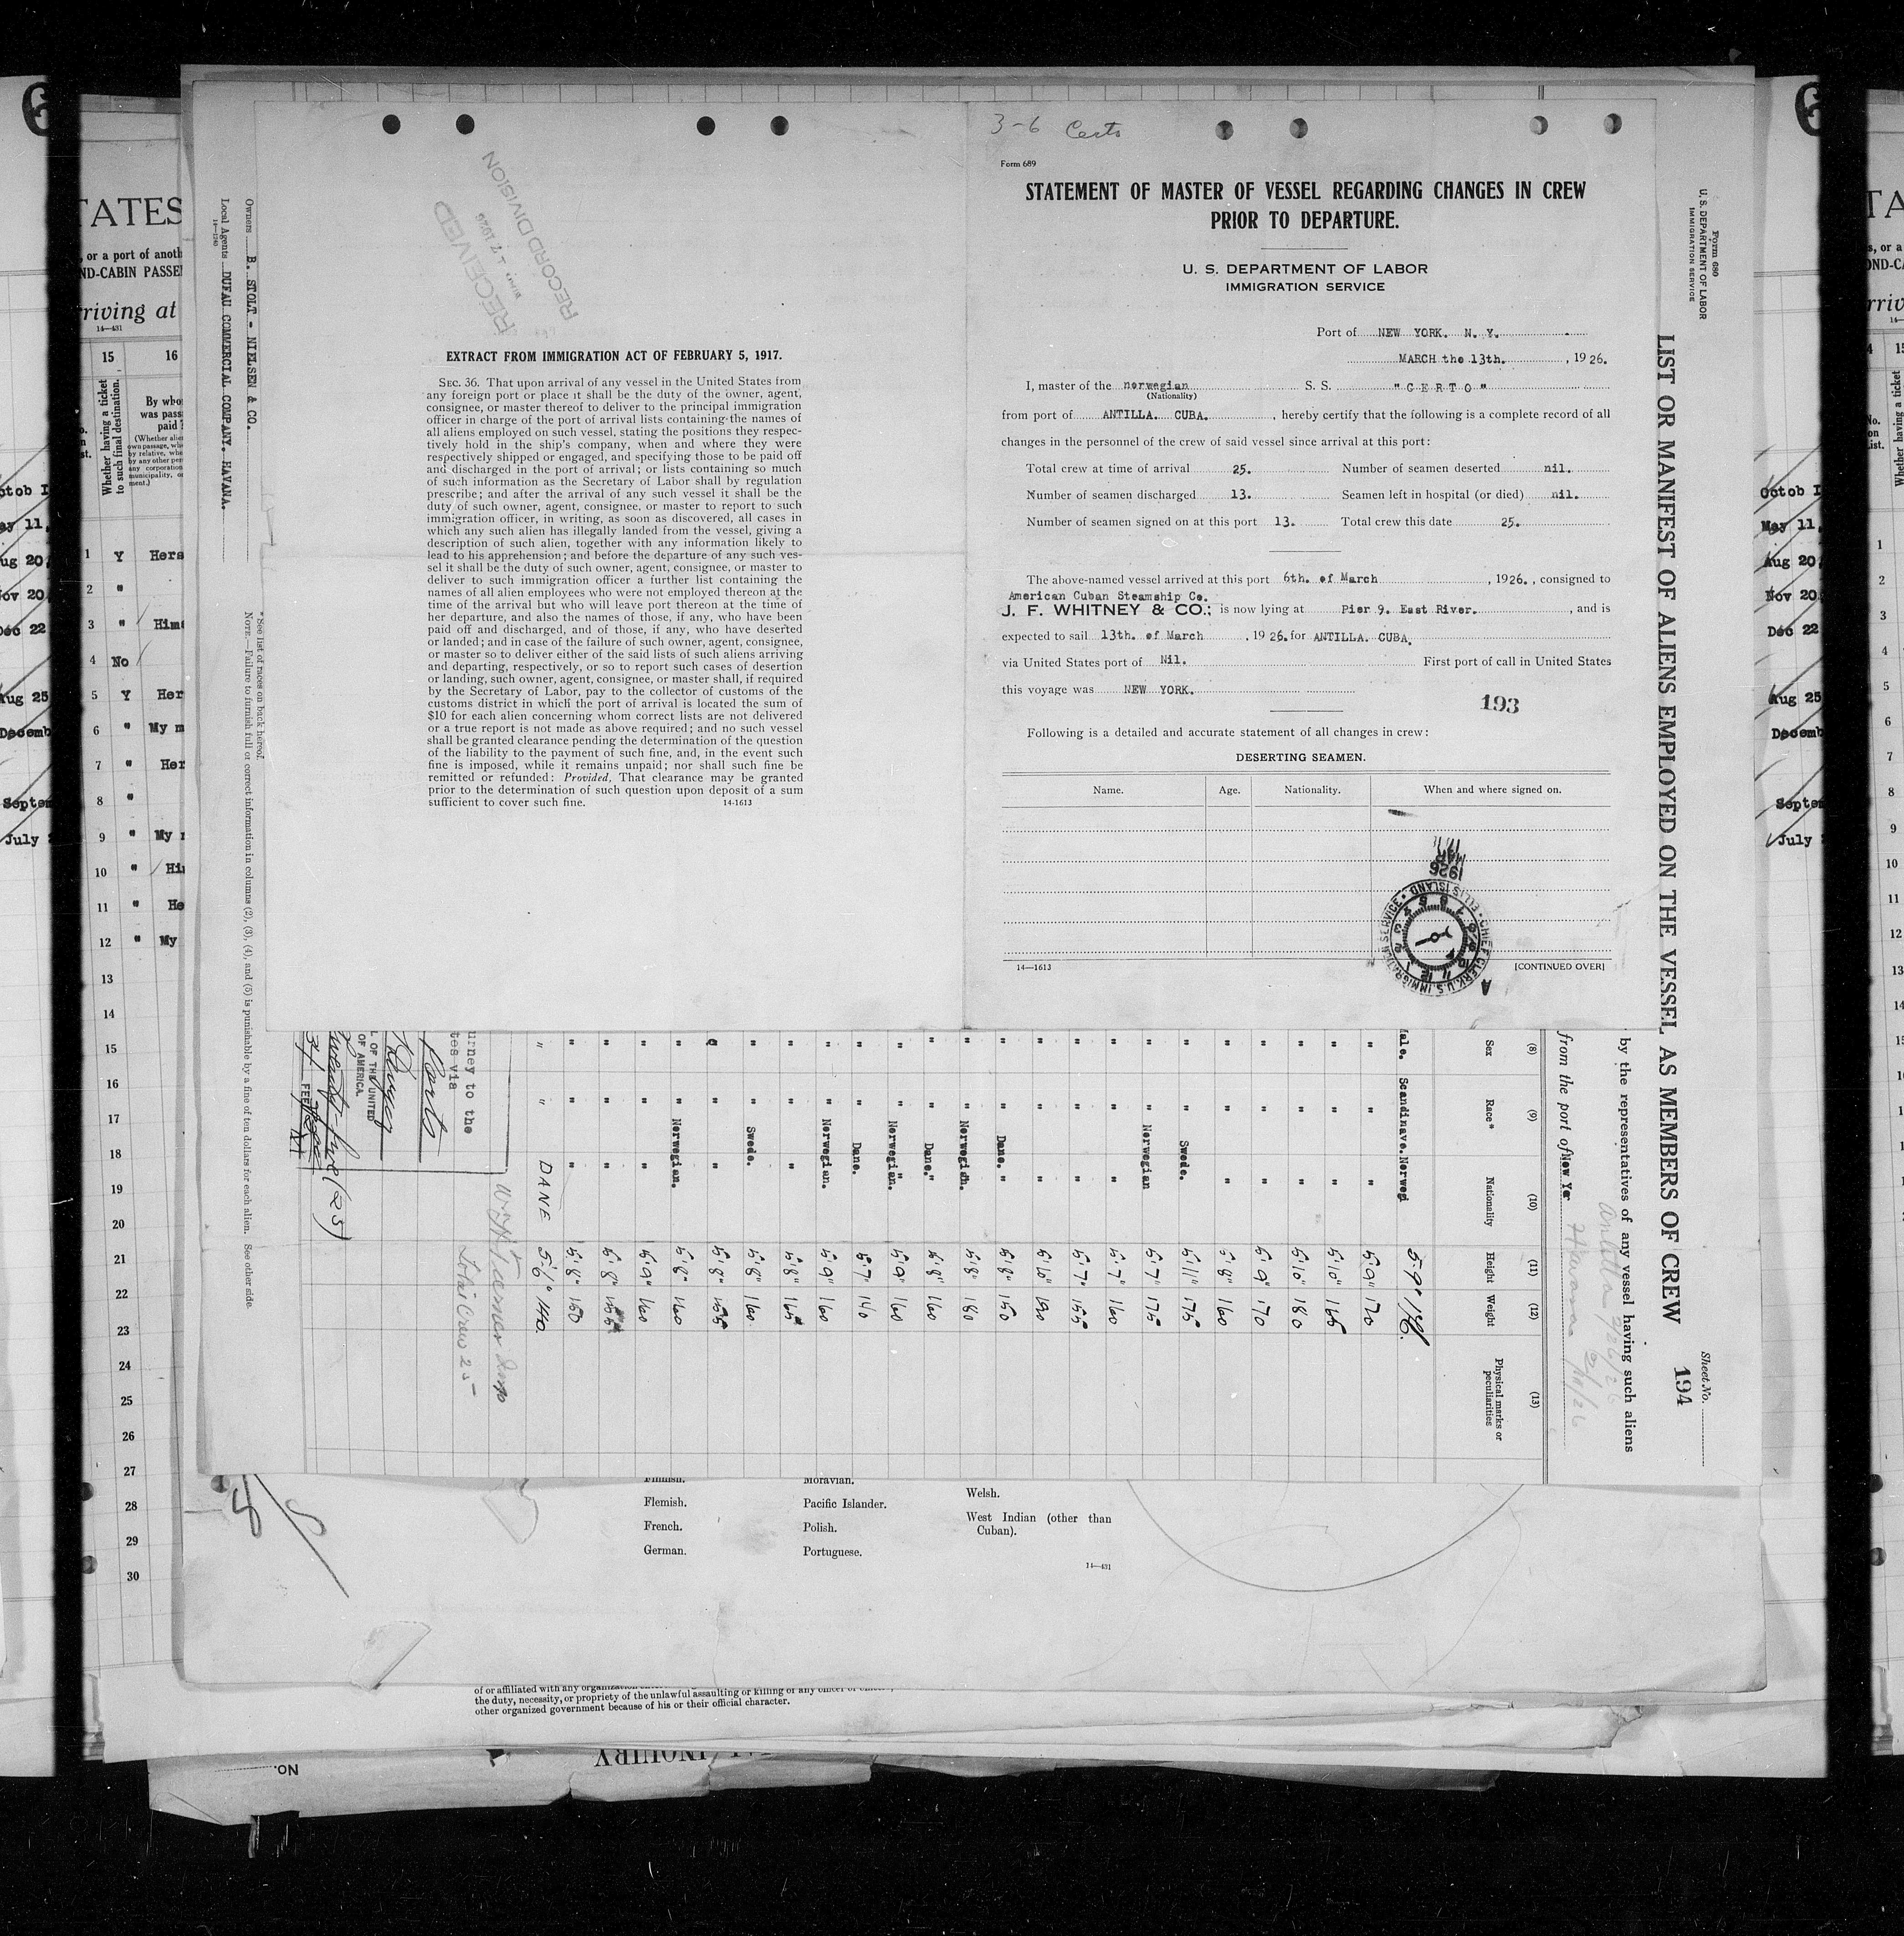 3-6 Certo
Form 689
STATEMENT OF MASTER OF VESSEL REGARDING CHANGES IN CREW
PRIOR TO DEPARTURE.
U. S. DEPARTMENT OF LABOR
IMMIGRATION SERVICE
Port of NEW YORK. N. Y.
MARCH the 13th. , 1926.
I, master of the norwegian S. S. "CERTO"
(Nationality)
from port of ANTILLA. CUBA. , hereby certify that the following is a complete record of all
changes in the personnel of the crew of said vessel since arrival at this port:
Total crew at time of arrival 25. Number of seamen deserted nil.
Number of seamen discharged 13. Seamen left in hospital (or died) nil.
Number of seamen signed on at this port 13. Total crew this date 25.
The above-named vessel arrived at this port 6th. of March , 1926. , consigned to
American Cuban Steamship Co.
J. F. WHITNEY & CO.; is now lying at Pier 9. East River. , and is
expected to sail 13th. of March , 1926. for ANTILLA. CUBA.
via United States port of Nil. First port of call in United States
this voyage was NEW YORK.
193
Following is a detailed and accurate statement of all changes in crew:
DESERTING SEAMEN.
Name. Age. Nationality. When and where signed on.
1926
CHIEF CLERK U.S. IMMIGRATION SERVICE • ELLIS ISLAND
14—1613 [CONTINUED OVER]
RECEIVED
RECORD DIVISION
EXTRACT FROM IMMIGRATION ACT OF FEBRUARY 5, 1917.
SEC. 36. That upon arrival of any vessel in the United States from
any foreign port or place it shall be the duty of the owner, agent,
consignee, or master thereof to deliver to the principal immigration
officer in charge of the port of arrival lists containing the names of
all aliens employed on such vessel, stating the positions they respec-
tively hold in the ship's company, when and where they were
respectively shipped or engaged, and specifying those to be paid off
and discharged in the port of arrival; or lists containing so much
of such information as the Secretary of Labor shall by regulation
prescribe; and after the arrival of any such vessel it shall be the
duty of such owner, agent, consignee, or master to report to such
immigration officer, in writing, as soon as discovered, all cases in
which any such alien has illegally landed from the vessel, giving a
description of such alien, together with any information likely to
lead to his apprehension; and before the departure of any such ves-
sel it shall be the duty of such owner, agent, consignee, or master to
deliver to such immigration officer a further list containing the
names of all alien employees who were not employed thereon at the
time of the arrival but who will leave port thereon at the time of
her departure, and also the names of those, if any, who have been
paid off and discharged, and of those, if any, who have deserted
or landed; and in case of the failure of such owner, agent, consignee,
or master so to deliver either of the said lists of such aliens arriving
and departing, respectively, or so to report such cases of desertion
or landing, such owner, agent, consignee, or master shall, if required
by the Secretary of Labor, pay to the collector of customs of the
customs district in which the port of arrival is located the sum of
$10 for each alien concerning whom correct lists are not delivered
or a true report is not made as above required; and no such vessel
shall be granted clearance pending the determination of the question
of the liability to the payment of such fine, and, in the event such
fine is imposed, while it remains unpaid; nor shall such fine be
remitted or refunded: Provided, That clearance may be granted
prior to the determination of such question upon deposit of a sum
sufficient to cover such fine. 14-1613
Form 680
U. S. DEPARTMENT OF LABOR
IMMIGRATION SERVICE
Sheet No.
194
LIST OR MANIFEST OF ALIENS EMPLOYED ON THE VESSEL AS MEMBERS OF CREW
by the representatives of any vessel having such aliens
Antilla 2/26/26
from the port of New Yor Havana 2/11/26
(8) (9) (10) (11) (12) (13)
Sex Race* Nationality Height Weight Physical marks or peculiarities
ale. Scandinave. Norwegi 5'9"
" " " 5'9" 170
" " " 5'10" 165
" " " 5'10" 180
" " " 5'9" 170
" " " 5'8" 160
" " Swede. 5'11" 175
" " Norwegian 5'7" 175
" " " 5'7" 160
" " " 5'7" 155
" " " 5'10" 190
" " Dane. " 5'8" 150
" " Norwegian. 5'8" 180
" " Dane." 5'8" 160
" " Norwegian." 5'9" 160
" " Dane. 5'7" 140
" " Norwegian. 5'9" 160
" " " 5'8" 165
" " Swede. 5'8" 160
" " " 5'8" 155
" " Norwegian. 5'8" 160
" " " 5'9" 160
" " " 5'8" 155
" " " 5'8" 150
" " DANE 5'6" 140.
Total Crew 25
urney to the
tes via
Ports
L OF THE UNITED
OF AMERICA.
twenty-five (25)
FEE
Owners B. STOLT - NIELSEN & CO.
Local Agents DUFAU COMMERCIAL COMPANY. HAVANA.
14—1240
*See list of races on back hereof.
NOTE.—Failure to furnish full or correct information in columns (2), (3), (4), and (5) is punishable by a fine of ten dollars for each alien. See other side.
TATES
, or a port of anoth
ND-CABIN PASSE
rriving at
14—431
15 16
Whether having a ticket to such final destination.
By who
was pass
paid?
1 Y Hers
2 "
3 " Hims
4 No
5 Y Her
6 " My m
7 " Her
8 "
9 " My
10 " Hi
11 " He
12 " My
13
14
15
16
17
18
19
20
21
22
23
24
25
26
27
28
29
30
Octob 1
May 11,
Aug 20,
Nov 20
Dec 22
Aug 25
Decemb
Septem
July
Finnish.
Flemish.
French.
German.
Moravian.
Pacific Islander.
Polish.
Portuguese.
Welsh.
West Indian (other than
Cuban).
14—431
of or affiliated with any
the duty, necessity, or propriety of the unlawful assaulting or killing of any officer
other organized government because of his or their official character.
INQUIRY
No.